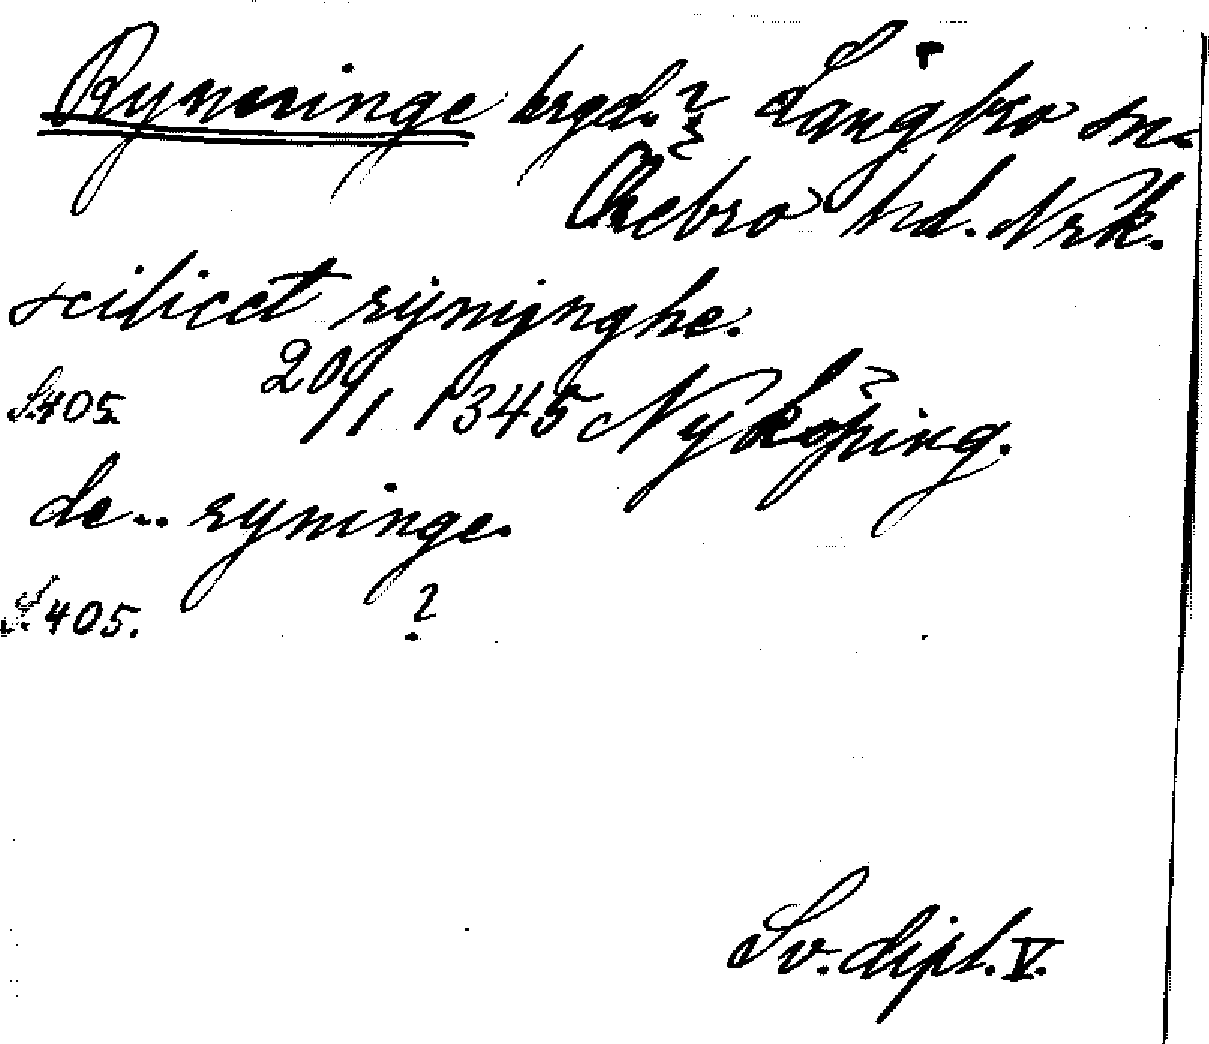 Rynninge brgd. Längbro sn.
Örebro hd. Nrk.
scilicet rÿnijnghe.
S. 405. 20/1 1345 Nyköping.
de .. ryninge.
S. 405. ?
Sv. dipl. V.